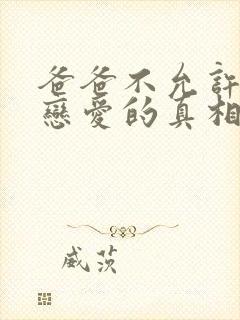 爸爸不允許
戀愛的真相
威茨